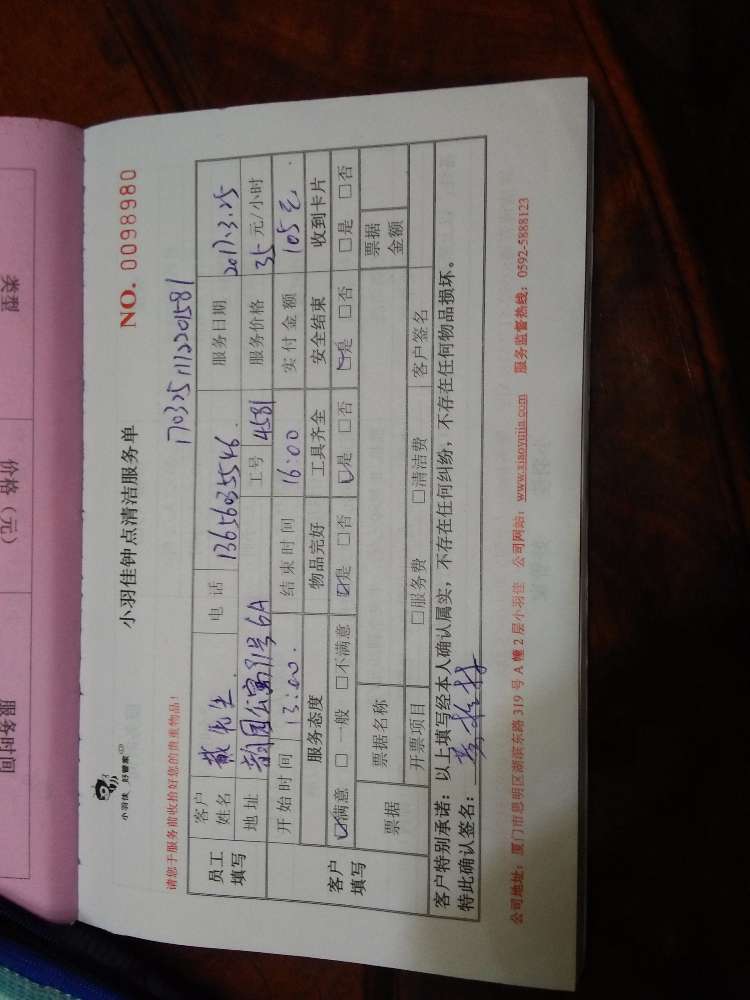 小羽佳 好管家
小羽佳钟点清洁服务单
NO. 0098980
请您于服务前收拾好您的贵重物品!
1703251113201581
员工填写
客户姓名 戴先生 电 话 13656035546 服务日期 2017.3.25
地 址 韵园公寓31号6A 工号 4581 服务价格 35 元/小时
开始时间 13:00 结束时间 16:00 实付金额 105元
客户填写
服务态度 物品完好 工具齐全 安全结束 收到卡片
☑满意 □一般 □不满意 ☑是 □否 ☑是 □否 ☑是 □否 □是 □否
票据 票据名称 票据金额
开票项目 □服务费 □清洁费 客户签名
客户特别承诺:以上填写经本人确认属实,不存在任何纠纷,不存在任何物品损坏。
特此确认签名:
公司地址:厦门市思明区湖滨东路 319 号 A 幢 2 层小羽佳 公司网站:www.xiaoyujia.com 服务监督热线:0592-5888123
类型
价格(元)
服务时间